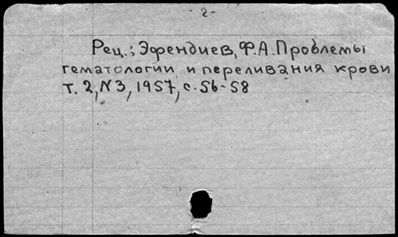 - 2 -
Рец.: Эфендиев, Ф.А. Проблемы
гематологии и переливания крови
т. 2, N3, 1957, с. 56-58